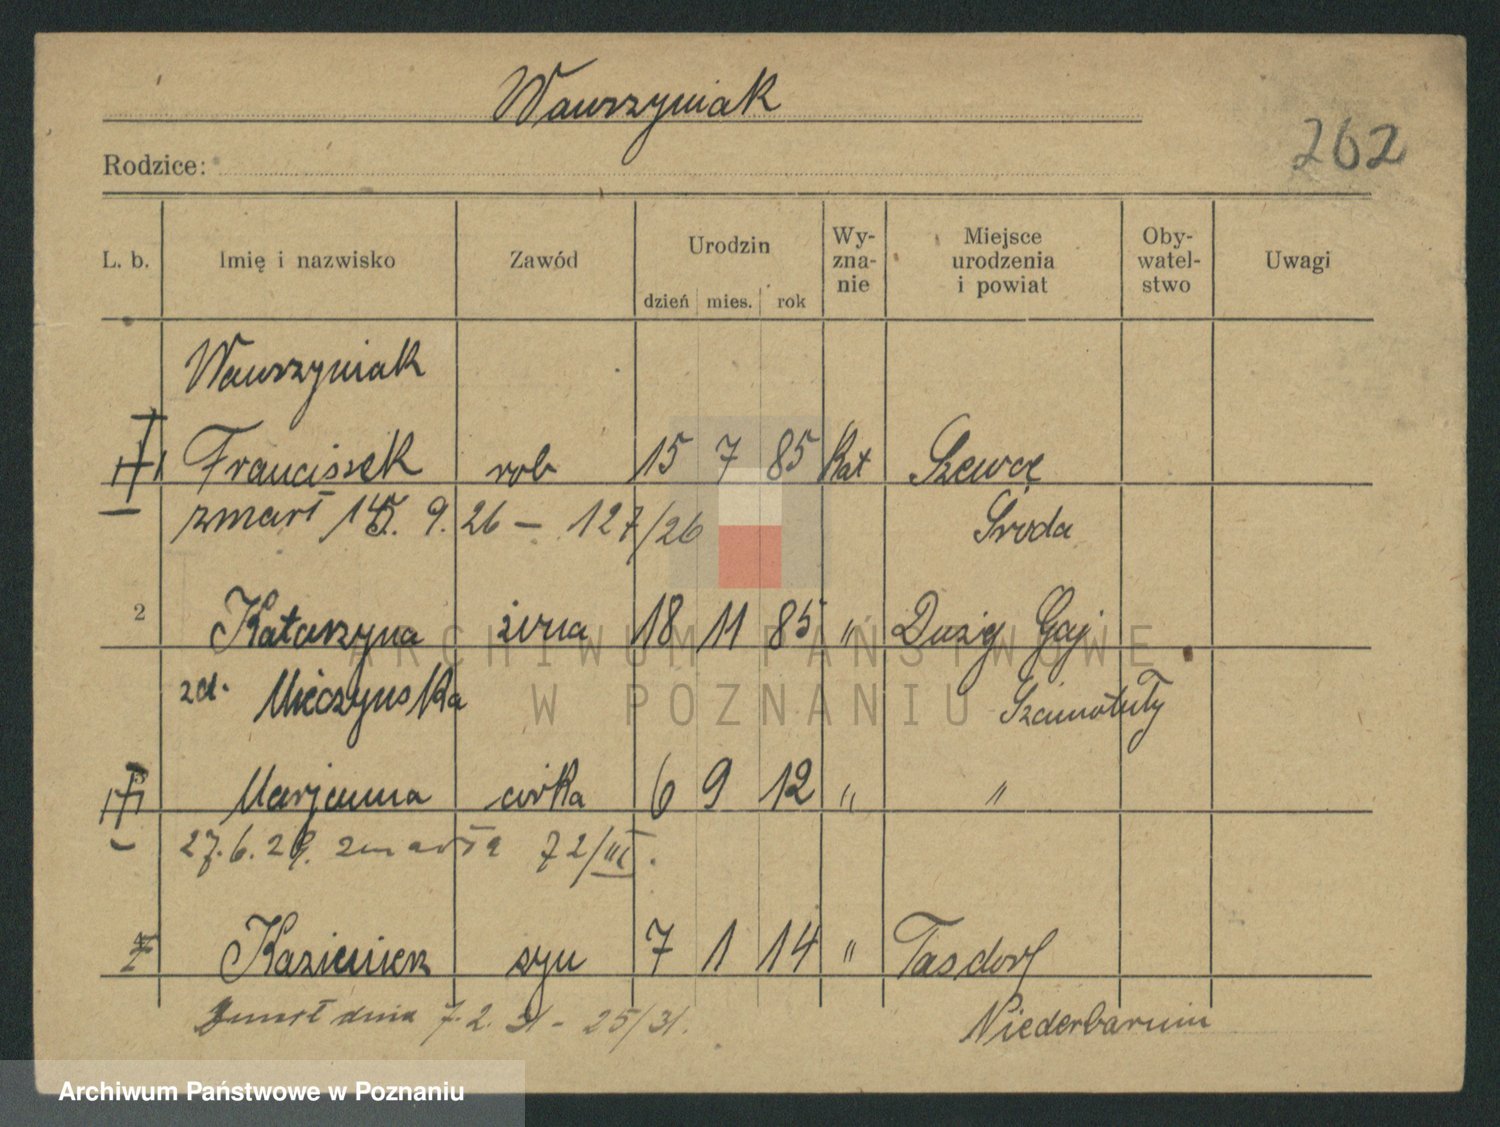 Wawrzyniak
262
Rodzice:
L. b. Imię i nazwisko Zawód Urodzin dzień mies. rok Wy-zna-nie Miejsce urodzenia i powiat Oby-watel-stwo Uwagi
Wawrzyniak
Franciszek rob 15 7 85 Kat Szewce
zmarł 15. 9. 26 – 127/26 Środa
2 Katarzyna żona 18 11 85 " Duży Gaj
zd. Mieczyńska Szamotuły
Marjanna córka 6 9 12 " "
27. 6. 29. zmarła 72/III.
4 Kazimierz syn 7 1 14 " Tasdorf
Zmarł dnia 7. 2. 31 – 25/31. Niederbarnim
ARCHIWUM PAŃSTWOWE
W POZNANIU
Archiwum Państwowe w Poznaniu